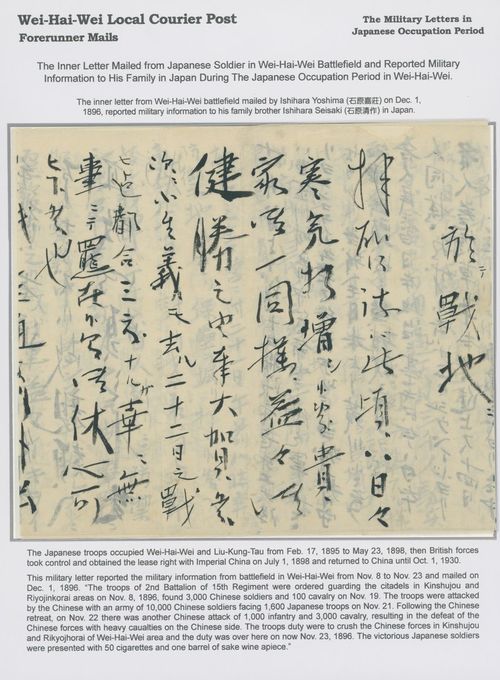 Wei-Hai-Wei Local Courier Post
Forerunner Mails
The Military Letters in
Japanese Occupation Period
The Inner Letter Mailed from Japanese Soldier in Wei-Hai-Wei Battlefield and Reported Military
Information to His Family in Japan During The Japanese Occupation Period in Wei-Hai-Wei.
The inner letter from Wei-Hai-Wei battlefield mailed by Ishihara Yoshima (石原嘉莊) on Dec. 1,
1896, reported military information to his family brother Ishihara Seisaki (石原清作) in Japan.
於テ戰地ニ
拝 此頃ハ日々
寒気相増シ 貴
家 一同様益々
健勝之由奉大賀
次ニ小生義モ去ル二十二日之戰
ヒ迄都合三度ナルガ幸ニ無
事ニテ罷在 休心可
也
The Japanese troops occupied Wei-Hai-Wei and Liu-Kung-Tau from Feb. 17, 1895 to May 23, 1898, then British forces
took control and obtained the lease right with Imperial China on July 1, 1898 and returned to China until Oct. 1, 1930.
This military letter reported the military information from battlefield in Wei-Hai-Wei from Nov. 8 to Nov. 23 and mailed on
Dec. 1, 1896. "The troops of 2nd Battalion of 15th Regiment were ordered guarding the citadels in Kinshujou and
Riyojinkorai areas on Nov. 8, 1896, found 3,000 Chinese soldiers and 100 cavalry on Nov. 19. The troops were attacked
by the Chinese with an army of 10,000 Chinese soldiers facing 1,600 Japanese troops on Nov. 21. Following the Chinese
retreat, on Nov. 22 there was another Chinese attack of 1,000 infantry and 3,000 cavalry, resulting in the defeat of the
Chinese forces with heavy caualties on the Chinese side. The troops duty were to crush the Chinese forces in Kinshujou
and Rikyojhorai of Wei-Hai-Wei area and the duty was over here on now Nov. 23, 1896. The victorious Japanese soldiers
were presented with 50 cigarettes and one barrel of sake wine apiece."